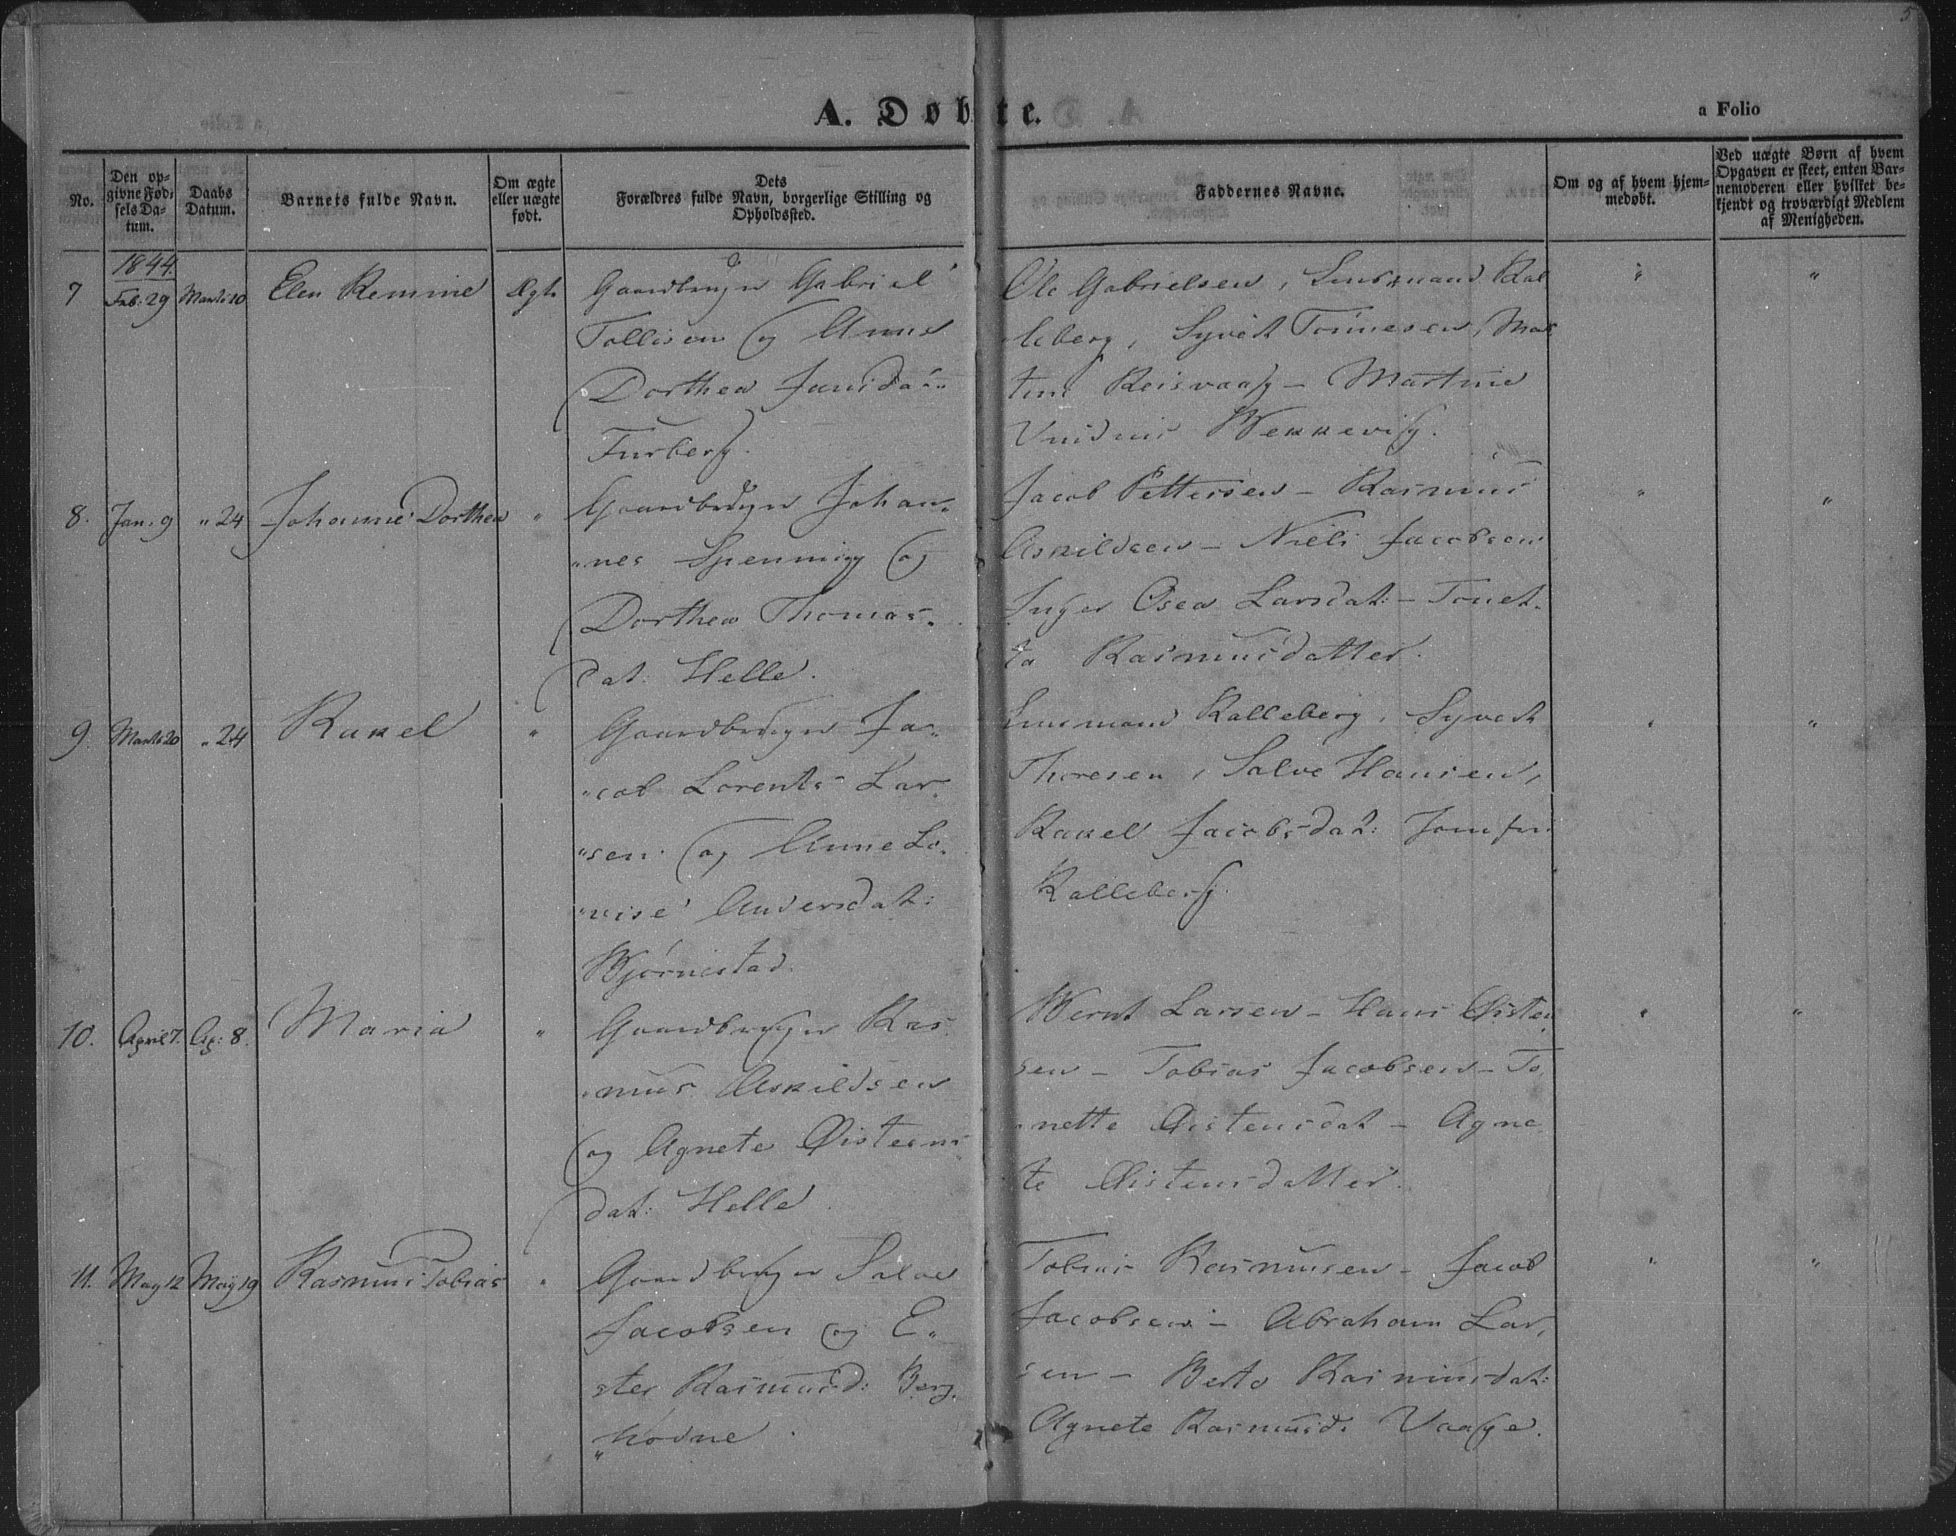 5
A. Døbte.
a Folio
No.
Den op-
givne Fød-
sels Da-
tum.
Daabs
Datum.
Barnets fulde Navn.
Om ægte
eller uægte
født.
Dets
Forældres fulde Navn, borgerlige Stilling og
Opholdssted.
Faddernes Navne.
Om og af hvem hjem-
medøbt.
Ved uægte Børn af hvem
Opgaven er skeet, enten Bar-
nemoderen eller hvilket be-
kjendt og troværdigt Medlem
af Menigheden.
1844.
7 Feb: 29 Marts 10 Elen Remine Ægte
Gaardbruger Gabriel
Tollisen og Anne
Dorthea Janisdat:
Furberg.
Ole Gabrielsen, Lensmand Kal
leberg, Syvert Tønnesen, Mar
tin Reisvaag - Martine
Wekkevig.
" "
8. Jan: 9 " 24 Johanne Dorthea "
Gaardbruger Johan-
"nes Spenning og
Dorthea Thomas-
dat: Helle.
Jacob Pettersen - Rasmus
Askildsen - Niels Jacobsen
Inger Osea Larsdat: - Tonet-
ta Rasmusdatter.
" "
9. Marts 20 " 24 Rakel "
Gaardbruger Ja-
"cob Lorents Lar-
"sen og Anne Lo-
"vise Andersdat:
Bjørnestad.
Lensmand Kalleberg, Syvert
Thoresen, Salve Hansen,
Rakel Jacobsdat: Jomfru
Kalleberg.
" "
10. April 7. Ap: 8. Maria "
Gaardbruger Ras
"mus Askildsen
og Agnete Øisteens
dat: Helle.
Bernt Larsen - Hans Øisten
sen - Tobias Jacobsen - To
"nette Øistensdat - Agne
te Øistensdatter.
" "
11. May 12 May 19 Rasmus Tobias "
Gaardbruger Salve
Jacobsen og E-
ster Rasmusd: Berg-
"hovne.
Tobias Rasmusen - Jacob
Jacobsen - Abraham Lar-
sen - Berte Rasmusdat:
Agnete Rasmusd: Vaage.
" "